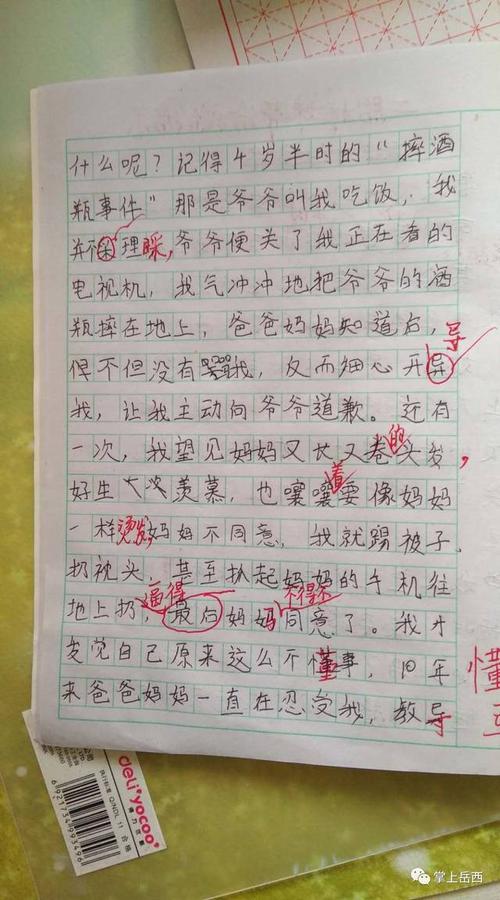 什么呢？记得4岁半时的“摔酒
瓶事件”那是爷爷叫我吃饭，我
并不理睬，爷爷便关了我正在看的
电视机，我气冲冲地把爷爷的酒
瓶摔在地上，爸爸妈妈知道后，
俾不但没有骂我，反而细心开导
导
我，让我主动向爷爷道歉。还有
一次，我望见妈妈又长又卷的头发，
好生羡慕，也嚷嚷着要像妈妈
一样烫发，妈妈不同意，我就踢被子，
扔枕头，甚至扒起妈妈的手机往
逼得 不得不
地上扔，最后妈妈同意了。我才
发觉自己原来这么不懂事，10年
懂
来爸爸妈妈一直在忍受我，教导
deli yocoo
QNDL 11 合格
6921734993496
掌上岳西